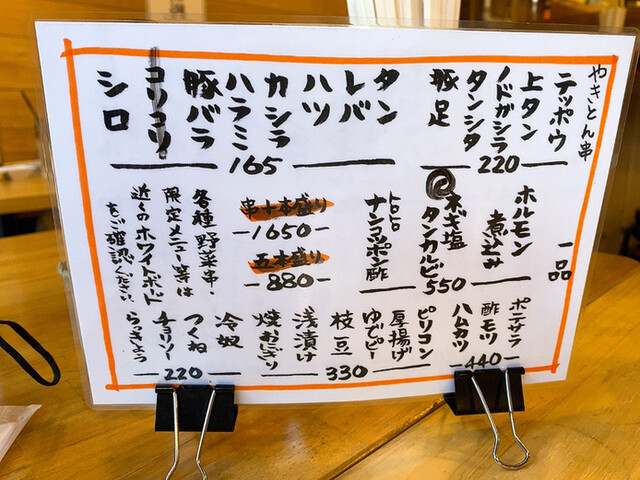 やきとん串
テッポウ
上タン
ノドガシラ
タンシタ
豚足
220
タン
レバ
ハツ
カシラ
ハラミ
豚バラ
コリコリ
シロ
165
一品
ホルモン
煮込み
ネギ塩
タンカルビ
トロトロ
ナンコツポン酢
550
串十本盛り
1650
五本盛り
880
各種野菜串・
限定メニュー等は
近くのホワイトボード
をご確認ください。
ポテサラ
酢モツ
ハムカツ
440
ピリコン
厚揚げ
ゆでピー
枝豆
浅漬け
焼おにぎり
330
冷奴
つくね
チョリソー
らっきょう
220